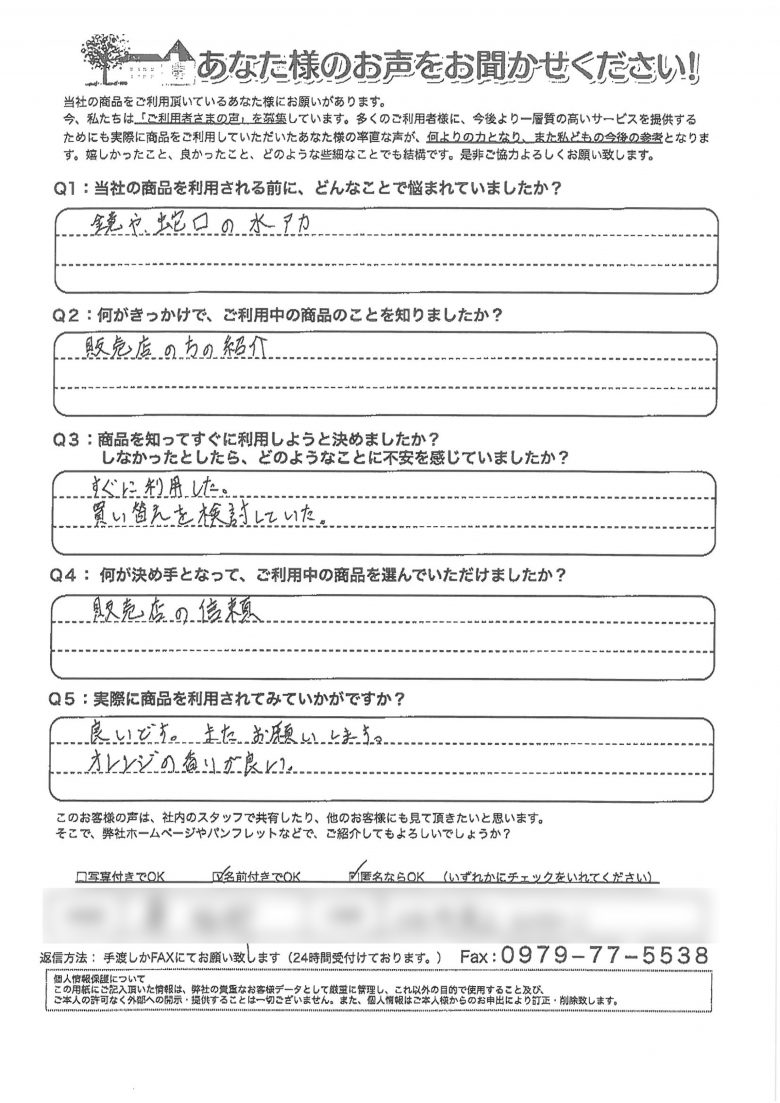 あなた様のお声をお聞かせください!
当社の商品をご利用頂いているあなた様にお願いがあります。
今、私たちは「ご利用者さまの声」を募集しています。多くのご利用者様に、今後より一層質の高いサービスを提供する
ためにも実際に商品をご利用していただいたあなた様の率直な声が、何よりの力となり、また私どもの今後の参考となりま
す。嬉しかったこと、良かったこと、どのような些細なことでも結構です。是非ご協力よろしくお願い致します。
Q1:当社の商品を利用される前に、どんなことで悩まれていましたか?
鏡や、蛇口の水アカ
Q2:何がきっかけで、ご利用中の商品のことを知りましたか?
販売店の方の紹介
Q3:商品を知ってすぐに利用しようと決めましたか?
しなかったとしたら、どのようなことに不安を感じていましたか?
すぐに利用した。
買い替えを検討していた。
Q4: 何が決め手となって、ご利用中の商品を選んでいただけましたか?
販売店の信頼
Q5:実際に商品を利用されてみていかがですか?
良いです。またお願いします。
オレンジの香りが良い。
このお客様の声は、社内のスタッフで共有したり、他のお客様にも見て頂きたいと思います。
そこで、弊社ホームページやパンフレットなどで、ご紹介してもよろしいでしょうか?
□写真付きでOK ☑名前付きでOK ☑匿名ならOK (いずれかにチェックをいれてください)
返信方法: 手渡しかFAXにてお願い致します(24時間受付けております。) Fax:0979-77-5538
個人情報保護について
この用紙にご記入頂いた情報は、弊社の貴重なお客様データとして厳重に管理し、これ以外の目的で使用すること及び、
ご本人の許可なく外部への開示・提供することは一切ございません。また、個人情報はご本人様からのお申出により訂正・削除致します。